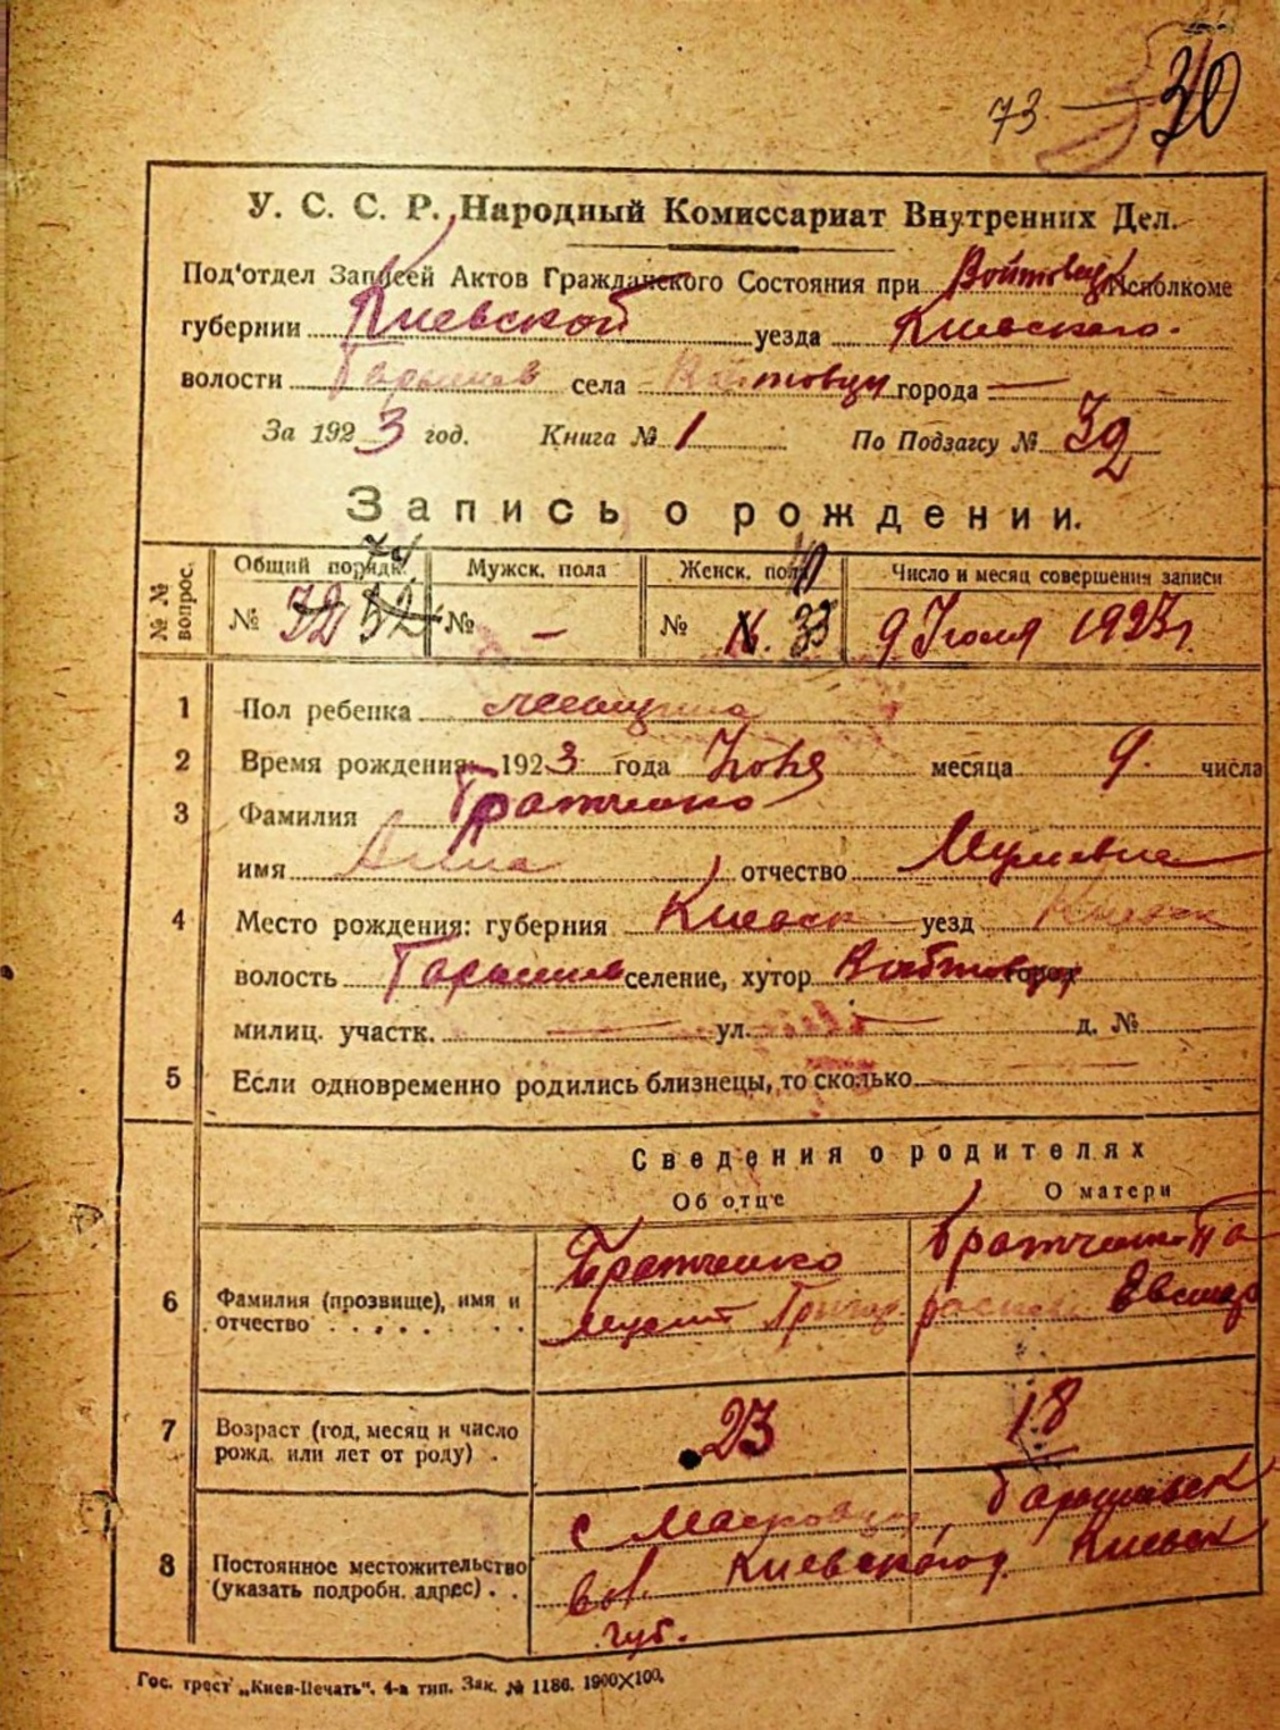 73 — 30
У. С. С. Р. Народный Комиссариат Внутренних Дел.
Под'отдел Записей Актов Гражданского Состояния при Войтовец Исполкоме
губернии Киевской уезда Киевского.
волости села Войтовци города —
За 1923 год. Книга № 1 По Подзагсу № 32
Запись о рождении.
№№ вопрос. Общий порядк. Мужск. пола Женск. пола Число и месяц совершения записи
№ 32 52 № — № 33 9 Июля 1923 г.
1 Пол ребенка женщина
2 Время рождения: 1923 года месяца 9. числа
3 Фамилия Братченко
имя Анна отчество
4 Место рождения: губерния Киевск уезд Киевск
волость селение, хутор Войтовци город
милиц. участк. — ул. — д. №
5 Если одновременно родились близнецы, то сколько —
Сведения о родителях
Об отце О матери
6 Фамилия (прозвище), имя и отчество . . . . . . .
Братченко
Григор.
Братченко Па
раски Евстаф
7 Возраст (год, месяц и число рожд. или лет от роду) .
23 18
8 Постоянное местожительство (указать подробн. адрес) . .
с Масковци, Барышевск
вол. Киевского у. Киевск
губ.
Гос. трест „Киев-Печать". 4-я тип. Зак. № 1186. 1900×100.